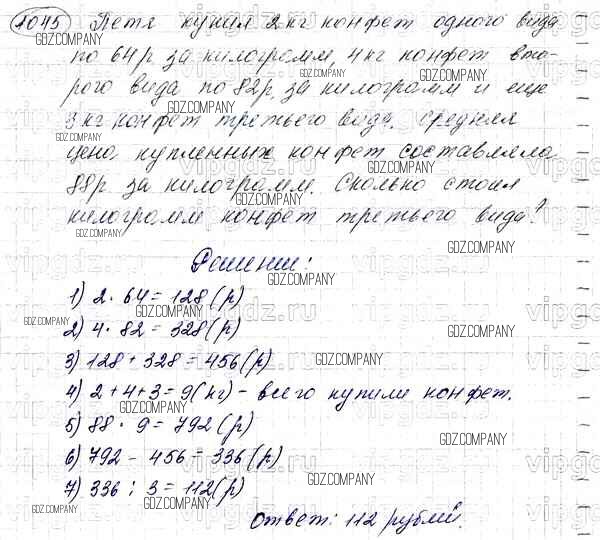 1045 Петя купил 2 кг конфет одного вида
по 64 р за килограмм, 4 кг конфет вто-
рого вида по 82 р. за килограмм и еще
3 кг конфет третьего вида. Средняя
цена купленных конфет составляла
88 р за килограмм. Сколько стоил
килограмм конфет третьего вида?
Решение:
1) 2 · 64 = 128 (р)
2) 4 · 82 = 328 (р)
3) 128 + 328 = 456 (р)
4) 2 + 4 + 3 = 9 (кг) - всего купили конфет.
5) 88 · 9 = 792 (р)
6) 792 - 456 = 336 (р)
7) 336 : 3 = 112 (р)
Ответ: 112 рублей.
GDZ.COMPANY
vipgdz.ru